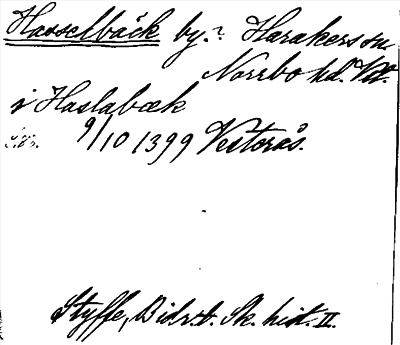 Hasselbäck by.? Harakers sn.
Norrbo hd. Vstm.
i Haslabæk
9/10 1399 Vestorås.
Styffe, Bidr. t. Sk. hist. II.